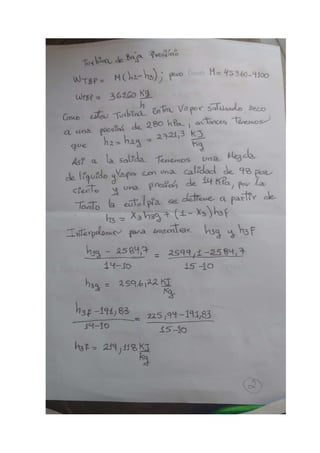 Turbina de Baja Presión
WTBP = M(h2-h3); pero M = 45360-9100
WTBP = 36260 Kg/h
Como esta Turbina Entra Vapor saturado seco
a una presión de 280 kPa, entonces Tenemos
que h2 = h2g = 2721,3 KJ/Kg
Así a la salida Tenemos una Mezcla
de líquido y Vapor con una calidad de 98 por
ciento y una presión de 14 KPa, por lo
Tanto la entalpia se obtiene a partir de
h3 = X3 h3g + (1 - X3) h3f
Interpolamos para encontrar h3g y h3f
h3g - 2584,7 / 14-10 = 2599,1 - 2584,7 / 15-10
h3g = 2596,22 KJ/Kg
h3f - 191,83 / 14-10 = 225,94 - 191,83 / 15-10
h3f = 219,118 KJ/Kg
2